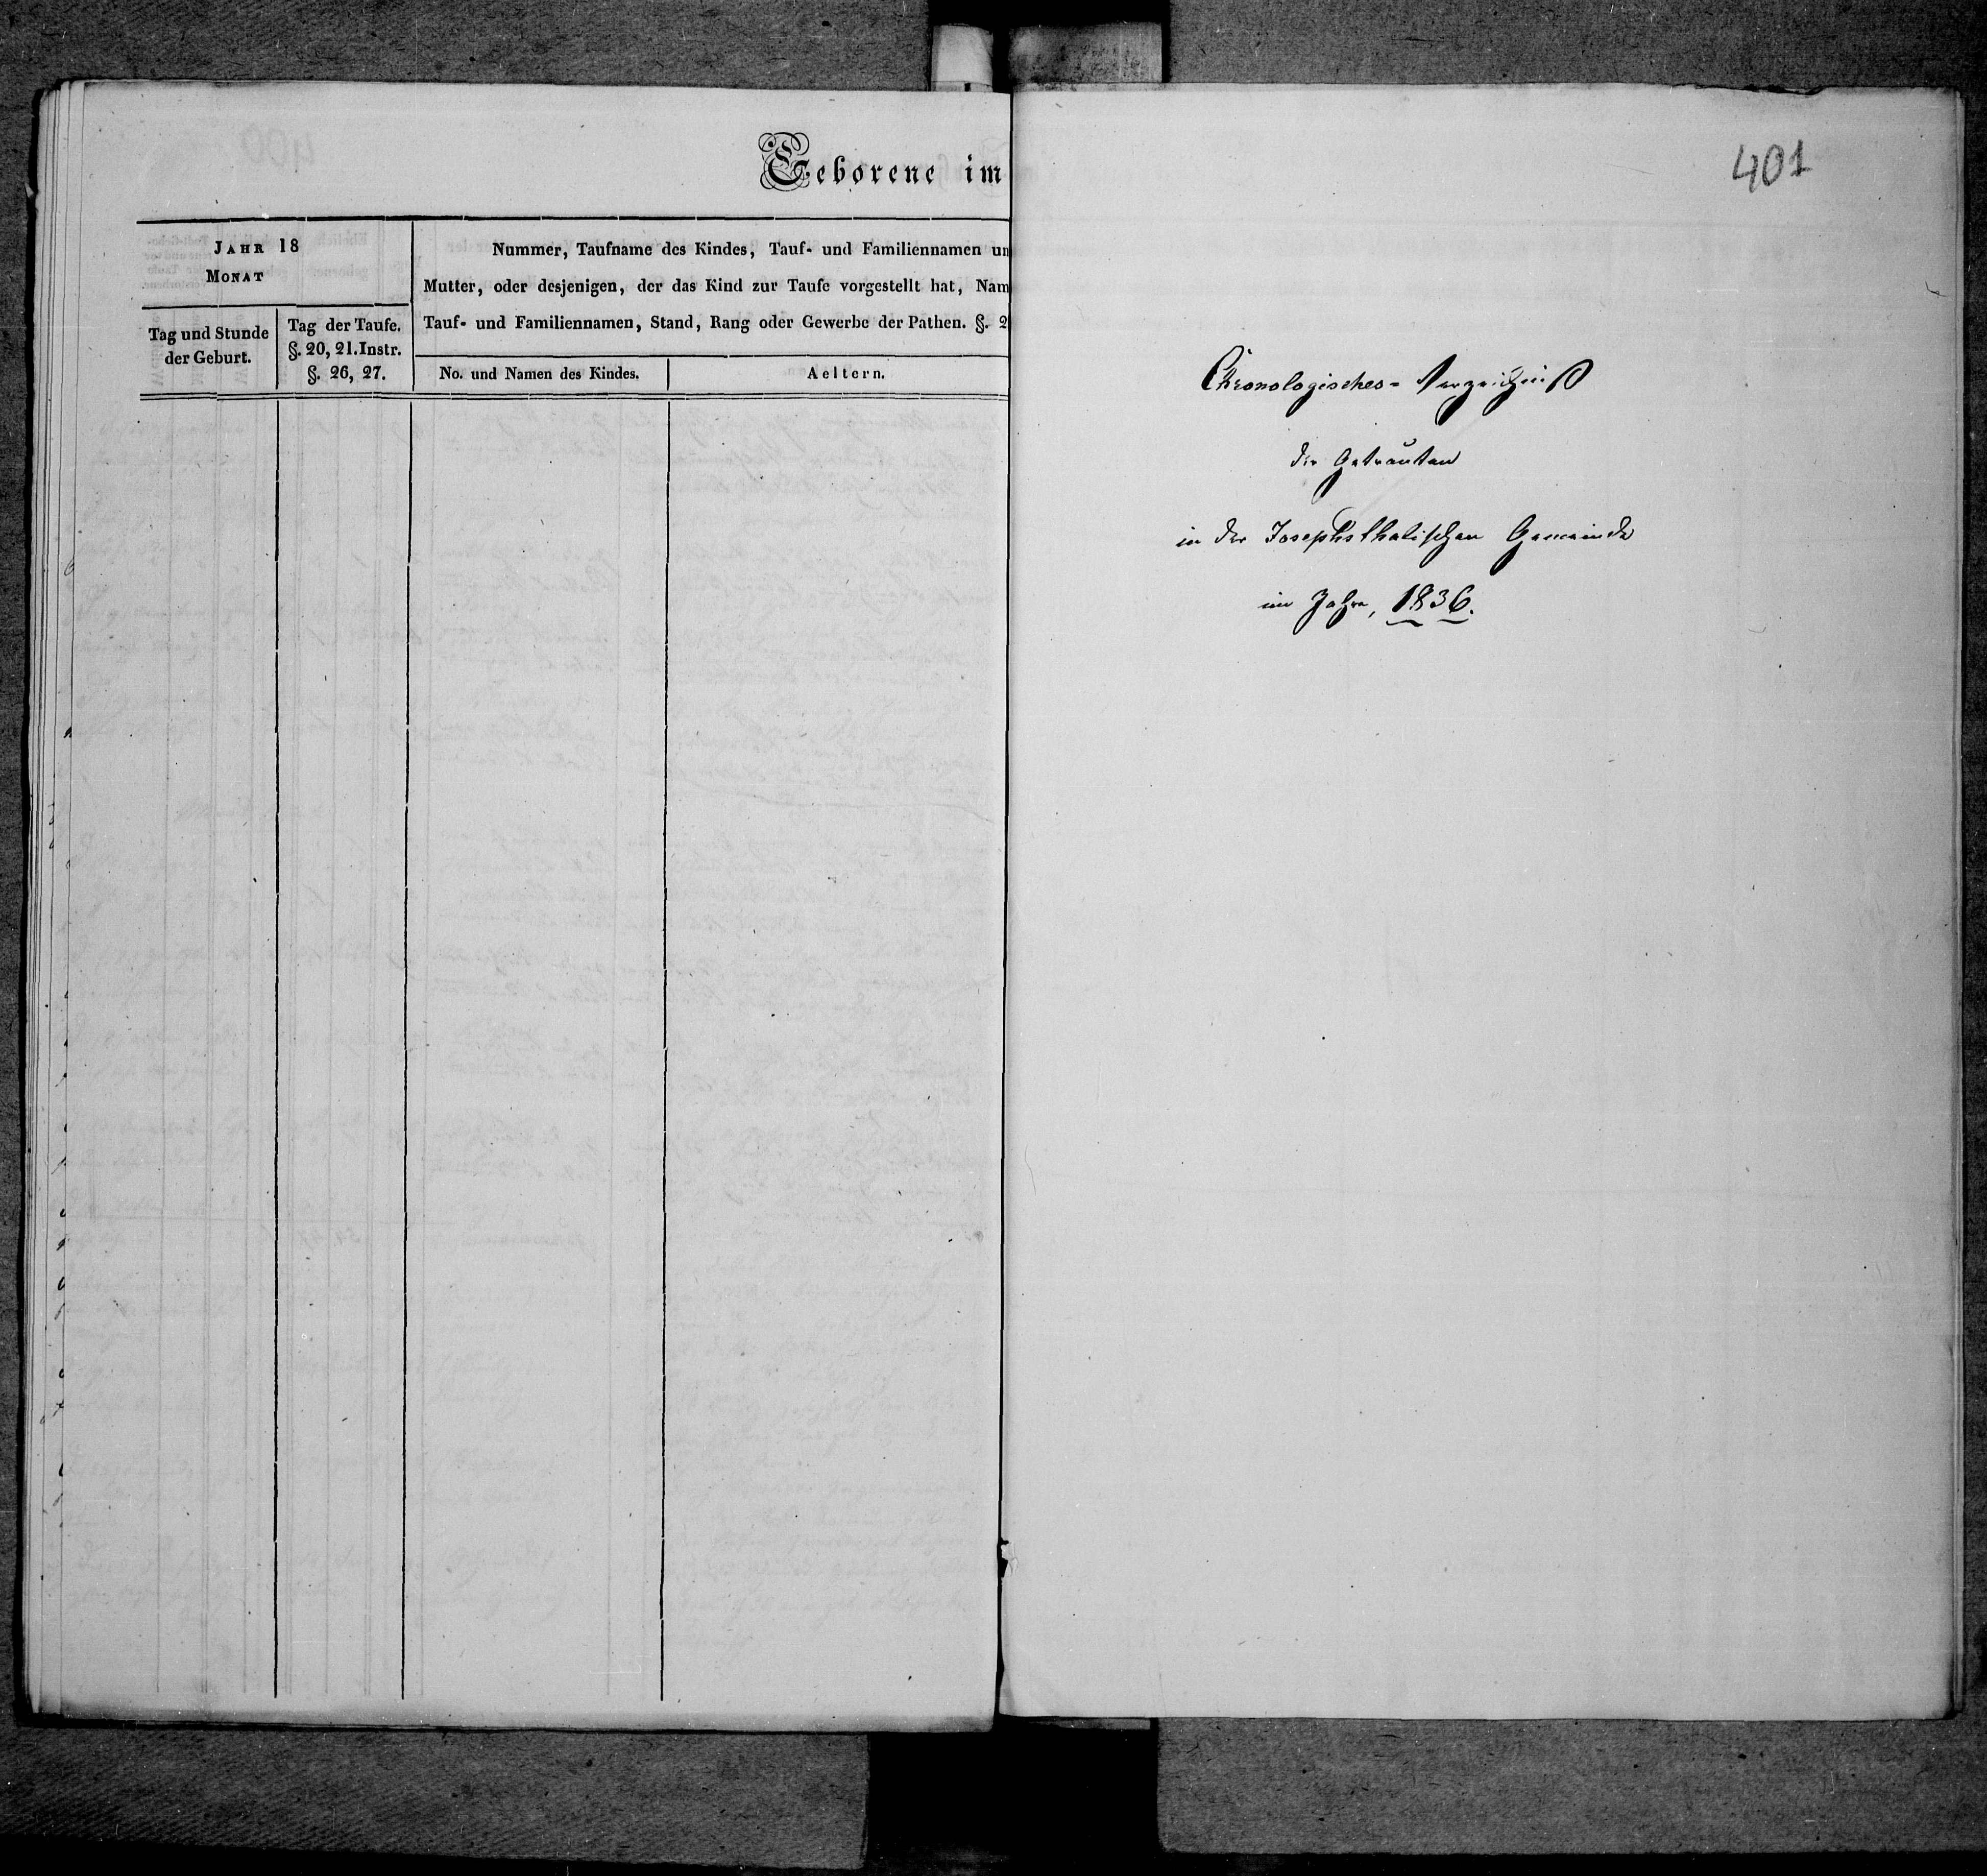 Geborene im
JAHR 18
MONAT
Nummer, Taufname des Kindes, Tauf- und Familiennamen un
Mutter, oder desjenigen, der das Kind zur Taufe vorgestellt hat, Nam
Tauf- und Familiennamen, Stand, Rang oder Gewerbe der Pathen. §. 2
Tag und Stunde
der Geburt.
Tag der Taufe.
§. 20, 21. Instr.
§. 26, 27.
No. und Namen des Kindes.
Aeltern.
401
Chronologisches-Verzeichniß
der Getrauten
in der Josephsthalischen Gemeinde
im Jahre, 1836.